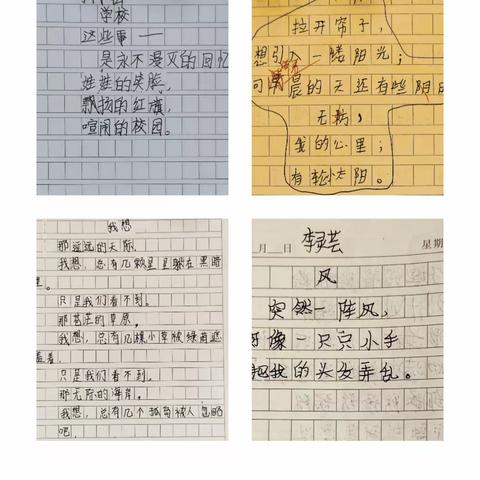 学校
这些事——
是永不漫灭的回忆
娃娃的笑脸，
飘扬的红旗，
喧闹的校园。
拉开帘子，
想引入一缕阳光；
可晨的天还有些阴
无妨，
我的心里；
有轮太阳。
我想
那遥远的天际，
我想，总有几颗星星躲在黑暗
里。
只是我们看不到。
那苍茫的草原。
我想，总有几棵小草被绿茵遮
盖着。
只是我们看不到。
那无际的海岸。
我想，总有几个孤岛被人忽略
吧。
月 日
李灵芸
星期
风
突然一阵风，
好像一只只小手
把我的头发弄乱。